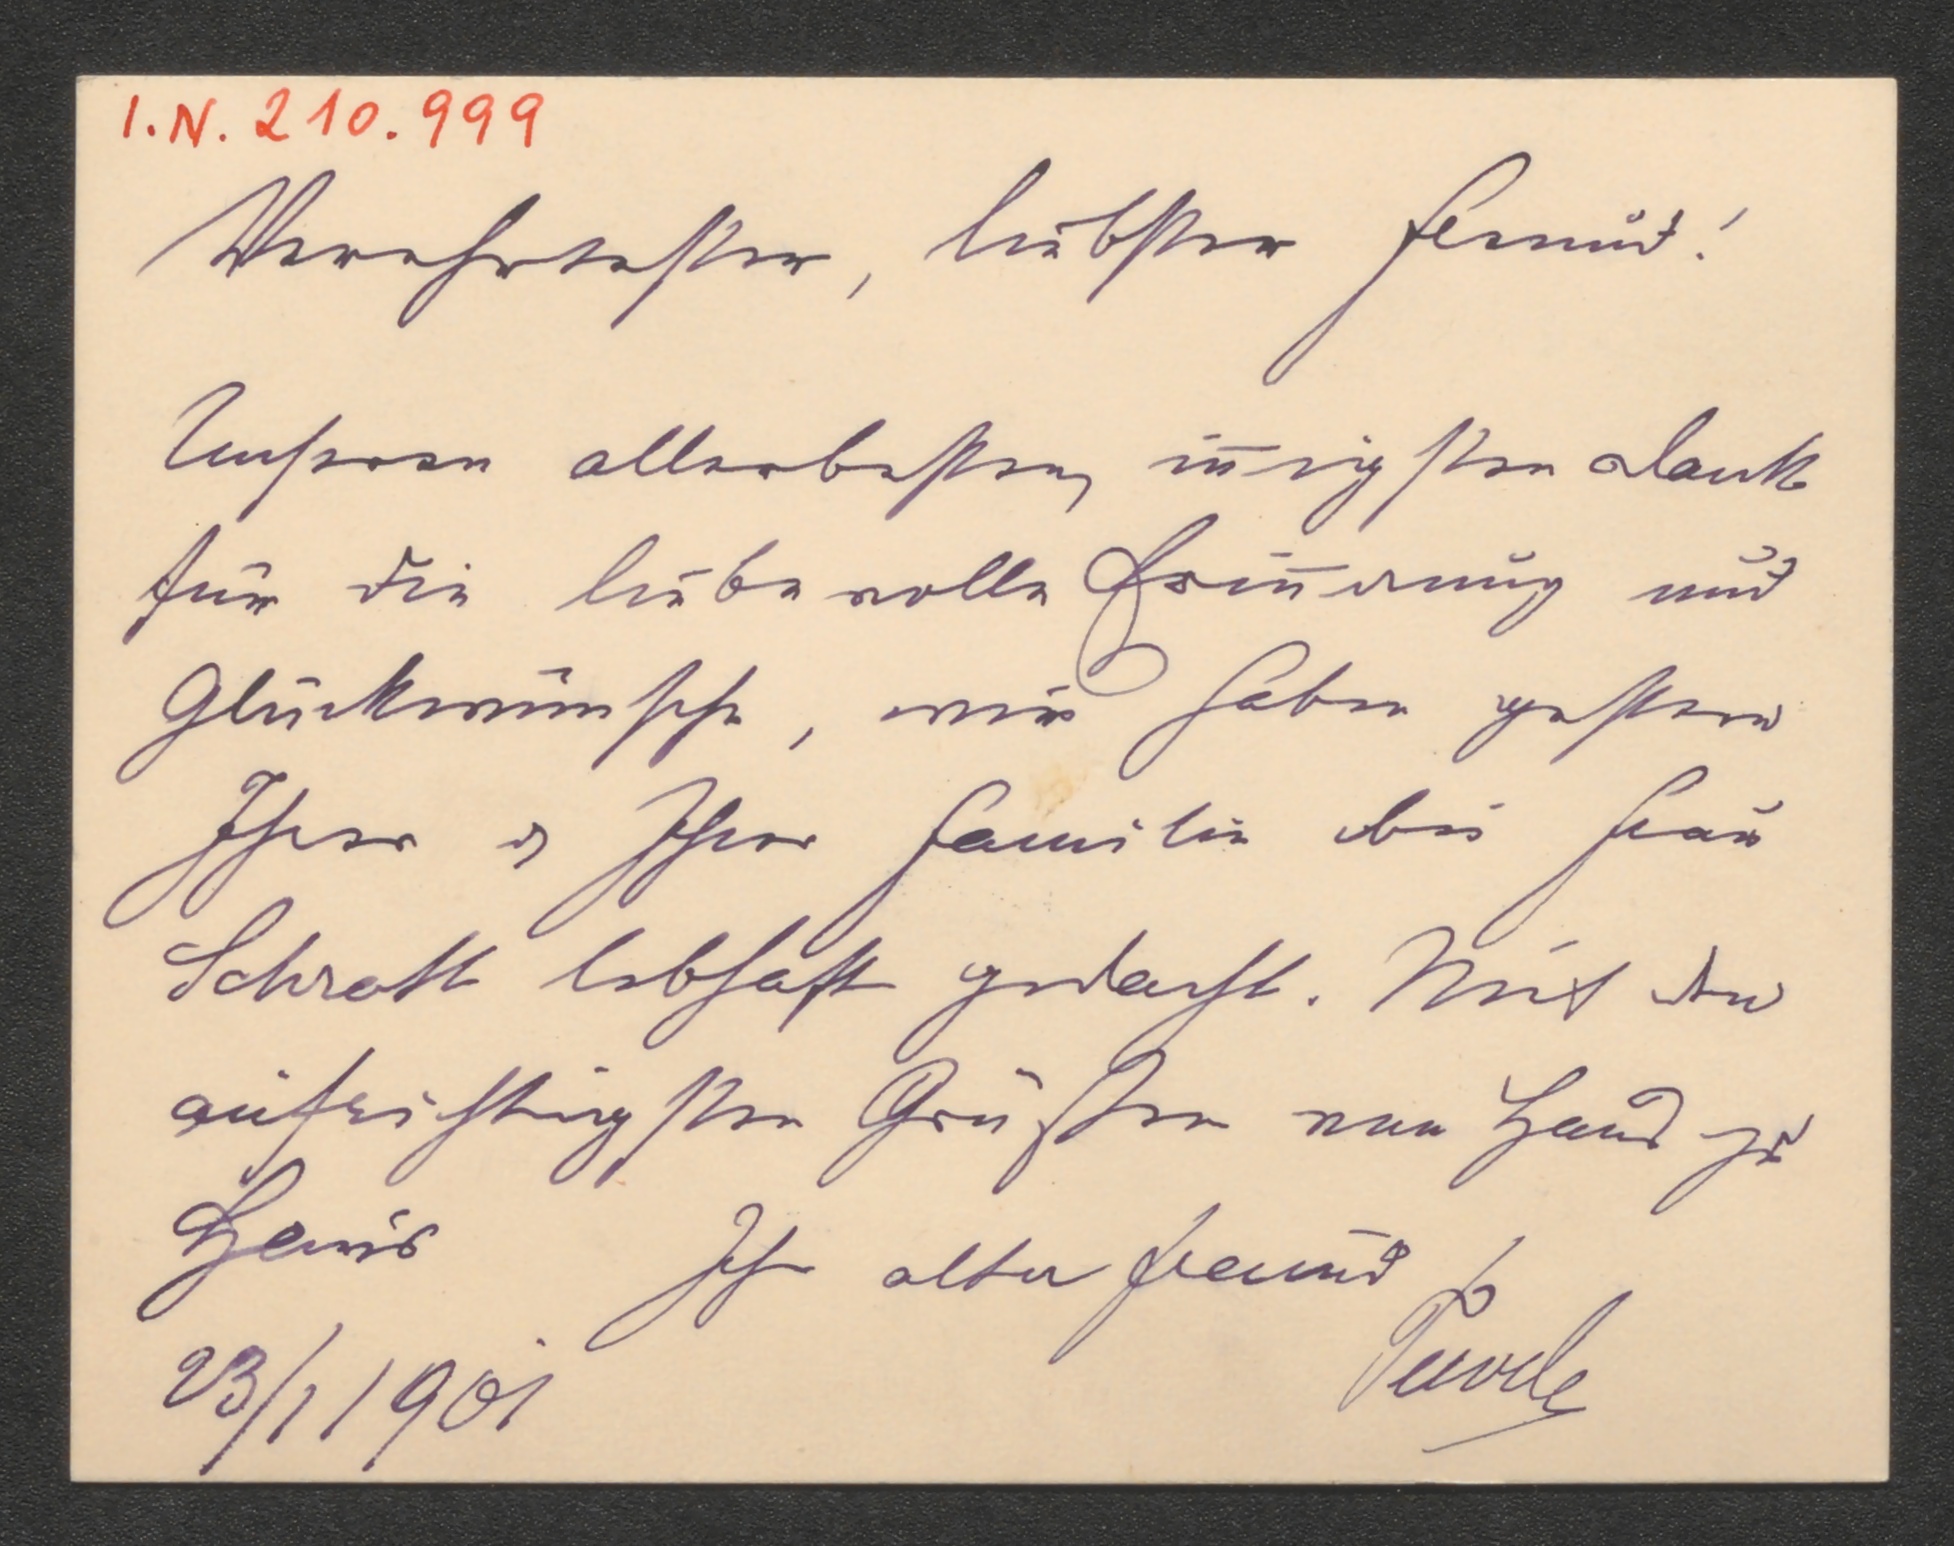 I.N. 210.999
Verehrtester, liebster Freund!
Unseren allerbesten, iñigsten Dank
für die liebevolle Eriñerung und
Glückwünsche, wir haben gestern
Ihrer & Ihrer Familie bei Frau
Schratt lebhaft gedacht. Mit den
aufrichtigsten Grüßen von Haus zu
Haus Ihr alter Freund
23/1 1901